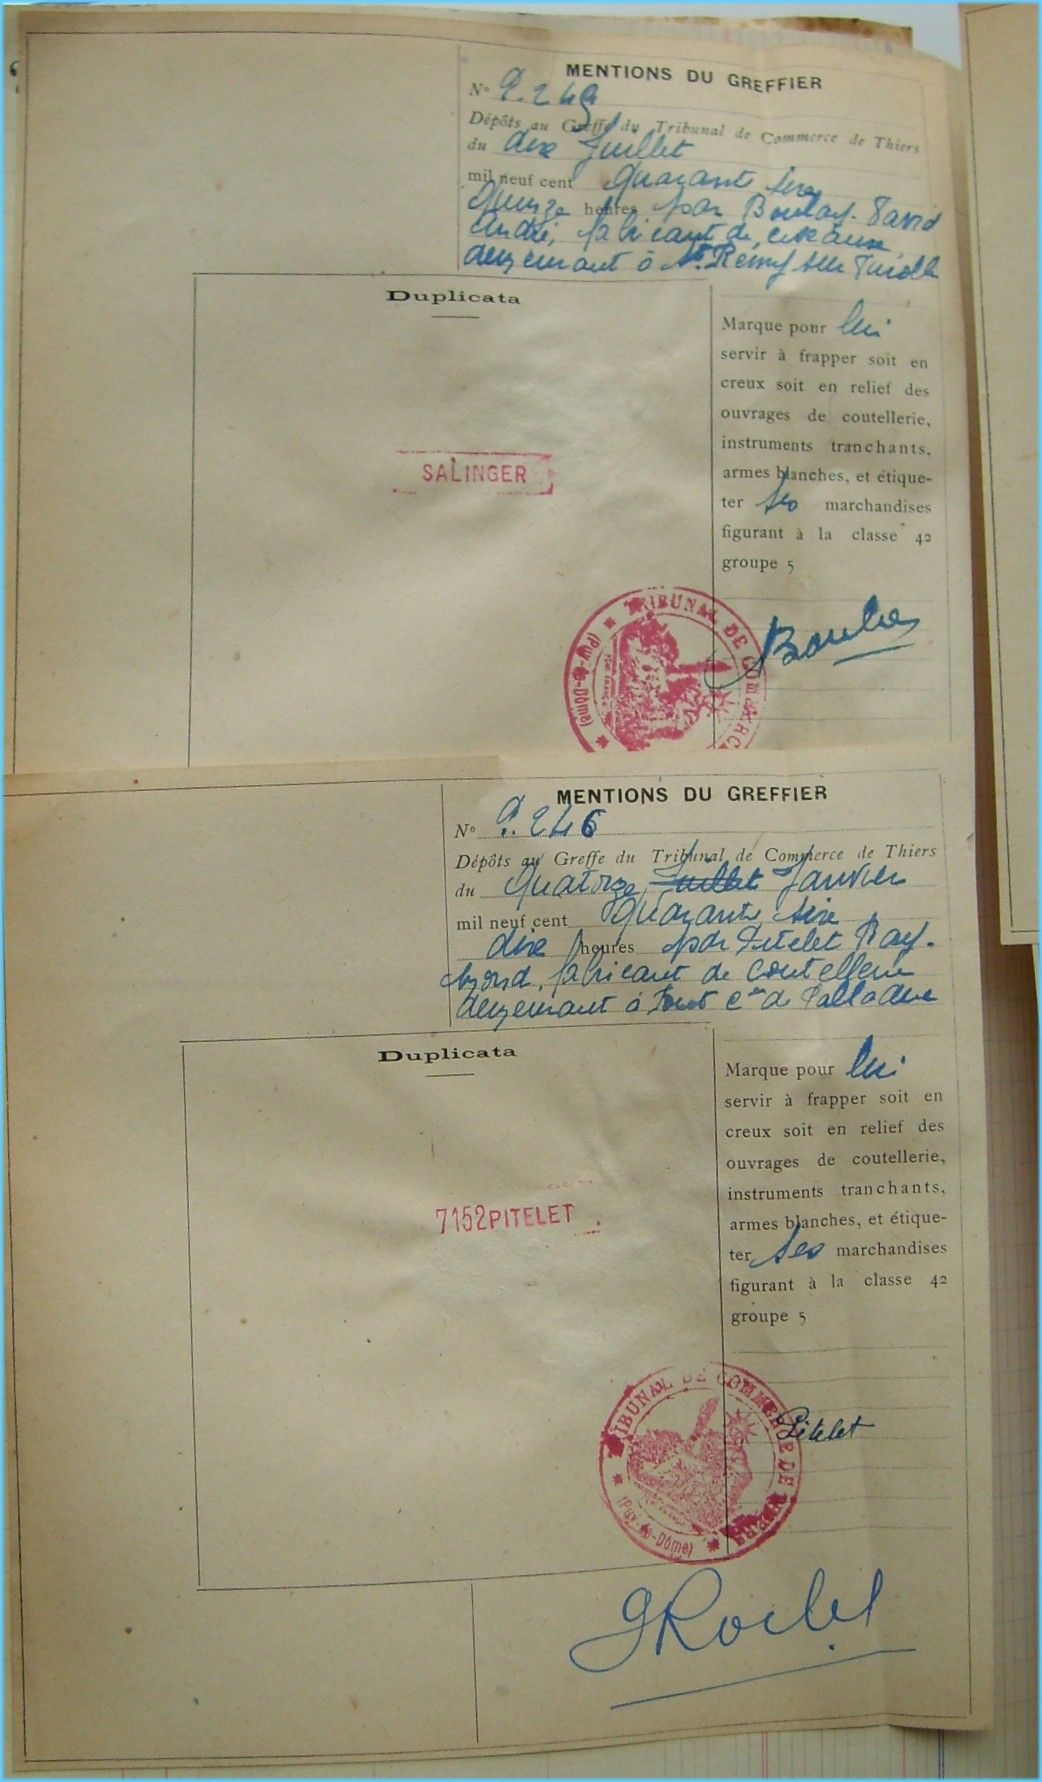 MENTIONS DU GREFFIER
N° P. 249
Dépôts au Greffe du Tribunal de Commerce de Thiers
du dix Juillet
mil neuf cent Quarante six
Quinze heures par Boulay-David
André, fabricant de ciseaux
demeurant à St Rémy sur Durolle
Duplicata
Marque pour lui
servir à frapper soit en
creux soit en relief des
ouvrages de coutellerie,
instruments tranchants,
armes blanches, et étique-
ter ses marchandises
figurant à la classe 42
groupe 5
SALINGER
TRIBUNAL DE COMMERCE
(Puy-de-Dôme)
MENTIONS DU GREFFIER
N° P. 246
Dépôts au Greffe du Tribunal de Commerce de Thiers
du Quatorze Juillet Janvier
mil neuf cent Quarante six
dix heures par Pitelet Ray-
mond, fabricant de coutellerie
demeurant à Pont Cne de Palladuc
Duplicata
Marque pour lui
servir à frapper soit en
creux soit en relief des
ouvrages de coutellerie,
instruments tranchants,
armes blanches, et étique-
ter ses marchandises
figurant à la classe 42
groupe 5
7152 PITELET
TRIBUNAL DE COMMERCE DE THIERS
(Puy-de-Dôme)
Pitelet